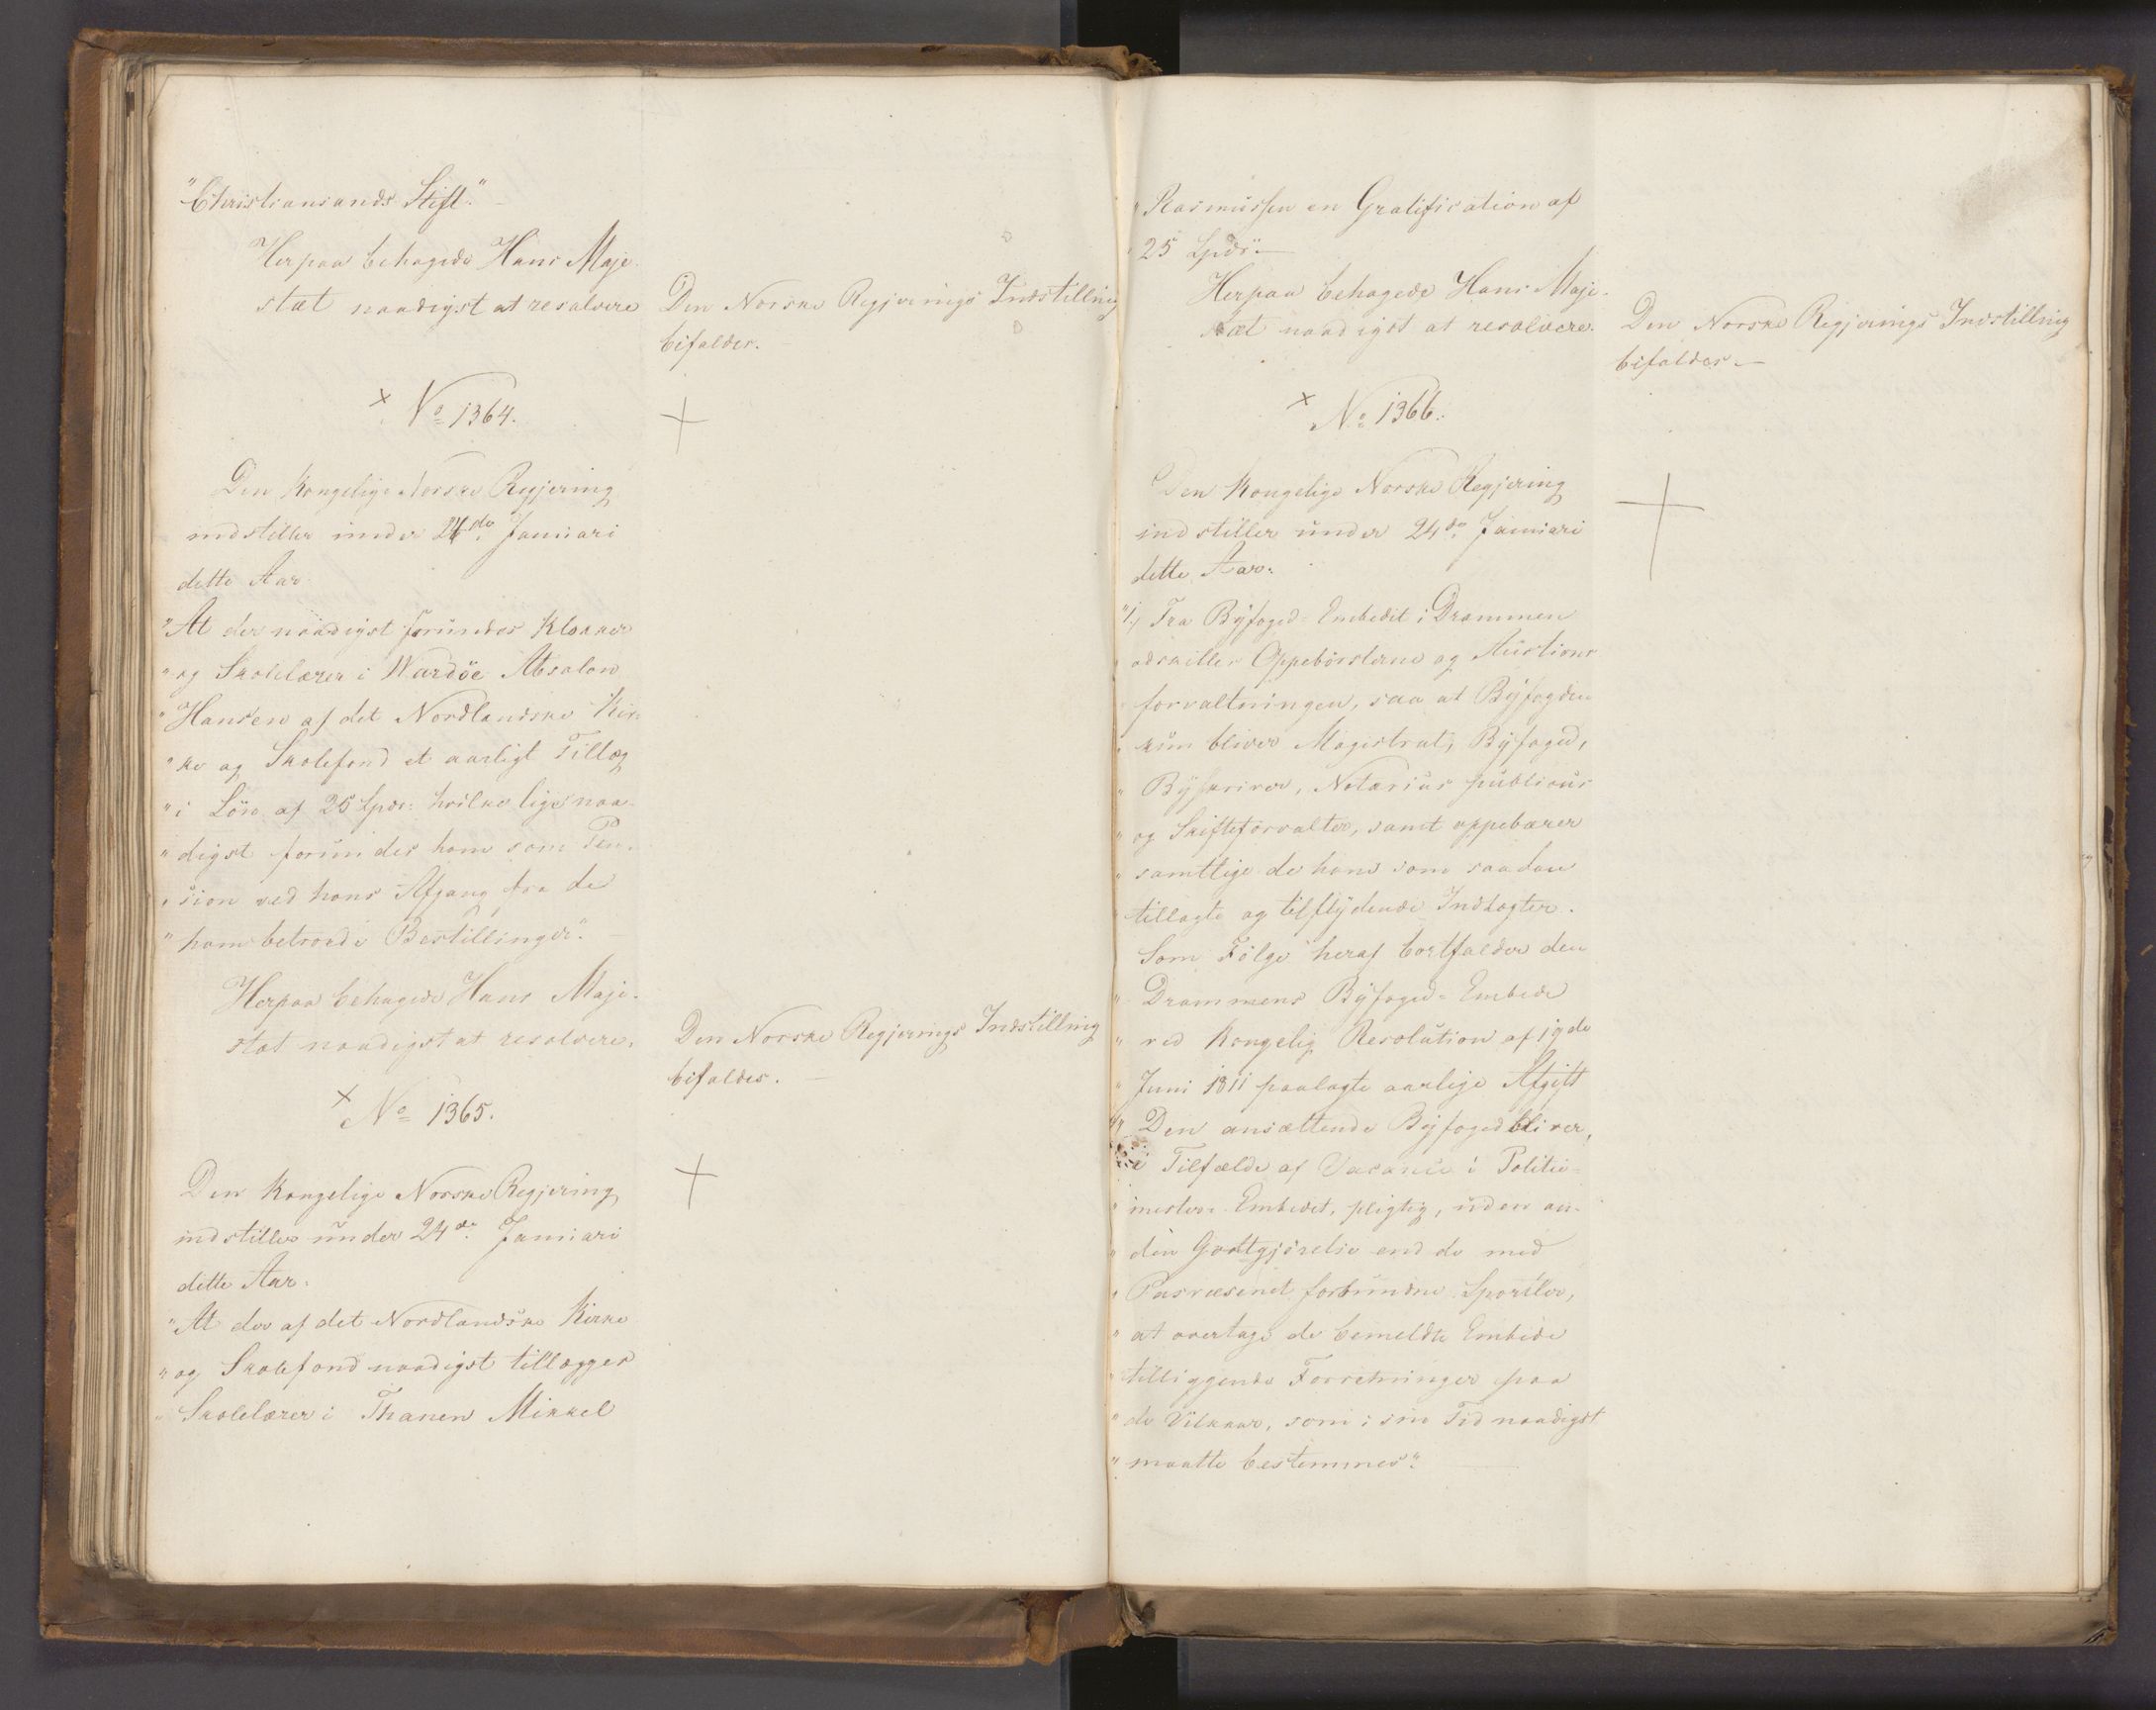 "Christiansands Stift."
Herpaa behagede Hans Maje-
stæt naadigst at resolvere
Den Norske Regjerings Indstilling
bifaldes.
× No 1364.
Den Kongelige Norske Regjering
indstiller under 24de Januari
dette Aar.
"At der naadigst forundes Klokker
" og Skolelærer i Wardöe Absalon
" Hansen af det Nordlandske Kir-
" ke og Skolefond et aarligt Tillæg
" i Lön af 25 Spdr: hvilke lige naa-
" digst forundes ham som Pen-
" sion ved hans Afgang fra de
" ham betroede Bestillinger".
Herpaa behagede Hans Maje-
stæt naadigst at resolvere.
Den Norske Regjerings Indstilling
bifaldes.
× No 1365.
Den Kongelige Norske Regjering
indstiller under 24de Januari
dette Aar.
"At der af det Nordlandske Kirke
" og Skolefond naadigst tillægges
" Skolelærer i Thanen Mikkel
" Rasmussen en Gratification af
" 25 Spdr".
Herpaa behagede Hans Maje-
stæt naadigst at resolvere.
Den Norske Regjerings Indstilling
bifaldes.
× No 1366.
Den Kongelige Norske Regjering
indstiller under 24de Januari
dette Aar.
"1, Fra Byfoged-Embedet i Drammen
" adskilles Oppebörslerne og Auctions
" forvaltningen, saa at Byfogden
" kun bliver Magistrat, Byfoged,
" Byskriver, Notarius publicus
" og Skifteforvalter, samt oppebærer
" samtlige de ham som saadan
" tillagte og tilflydende Indtægter.
Som Fölge heraf bortfalder den
" Drammens Byfoged-Embede
" ved Kongelig Resolution af 19de
" Juni 1811 paalagte aarlige Afgift
" Den ansættende Byfoged bliver,
" i Tilfælde af Vacance i Politie-
" mester-Embedet, pligtig, uden an-
" den Godtgjörelse end de med
" Pasvæsenet forbundne Sportler,
" at overtage de bemeldte Embede
" tilliggende Forretninger paa
" de Vilkaar, som i sin Tid naadigst
" maatte bestemmes".